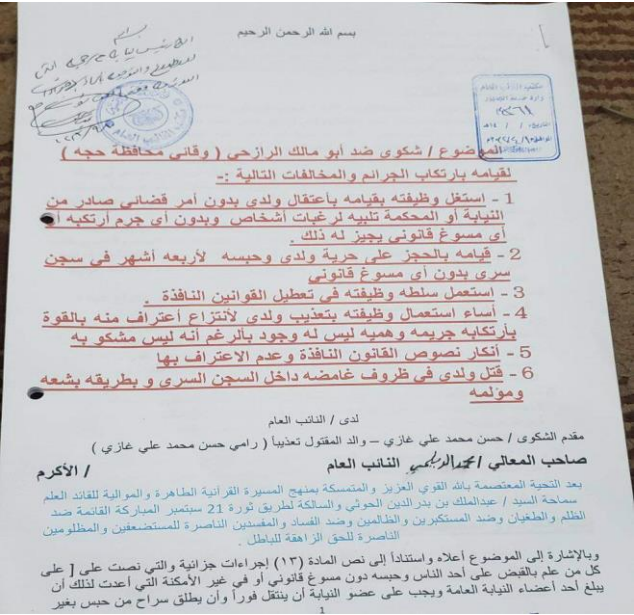 بسم الله الرحمن الرحيم
الموضوع / شكوى ضد أبو مالك الرازحي ( وقائي محافظة حجه )
لقيامه بارتكاب الجرائم والمخالفات التالية :-
1 - استغل وظيفته بقيامه بأعتقال ولدى بدون أمر قضائي صادر من
النيابة أو المحكمة تلبيه لرغبات أشخاص وبدون أى جرم أرتكبه أو
أى مسوغ قانوني يجيز له ذلك .
2 - قيامه بالحجز على حرية ولدى وحبسه لأربعه أشهر فى سجن
سرى بدون أى مسوغ قانوني
3 - أستعمل سلطه وظيفته في تعطيل القوانين النافذة .
4 - أساء استعمال وظيفته بتعذيب ولدى لأنتزاع أعتراف منه بالقوة
بأرتكابه جريمه وهميه ليس له وجود بالرغم أنه ليس مشكو به
5 - أنكار نصوص القانون النافذة وعدم الاعتراف بها
6 - قتل ولدى فى ظروف غامضه داخل السجن السرى و بطريقه بشعه
ومؤلمه
لدى / النائب العام
مقدم الشكوى / حسن محمد علي غازي – والد المقتول تعذيباً ( رامي حسن محمد علي غازي )
صاحب المعالي / محمد الديلمي النائب العام / الأكرم
بعد التحية المعتصمة بالله القوي العزيز والمتمسكة بمنهج المسيرة القرآنية الطاهرة والموالية للقائد العلم
سماحة السيد / عبدالملك بن بدرالدين الحوثي والسالكة لطريق ثورة 21 سبتمبر المباركة القائمة ضد
الظلم والطغيان وضد المستكبرين والظالمين وضد الفساد والمفسدين الناصرة للمستضعفين والمظلومين
الناصرة للحق الزاهقة للباطل .
وبالإشارة إلى الموضوع أعلاه واستناداً إلى نص المادة (١٣) إجراءات جزائية والتي نصت على [ على
كل من علم بالقبض على أحد الناس وحبسه دون مسوغ قانوني أو في غير الأمكنة التي أعدت لذلك أن
يبلغ أحد أعضاء النيابة العامة ويجب على عضو النيابة أن ينتقل فوراً وأن يطلق سراح من حبس بغير
1